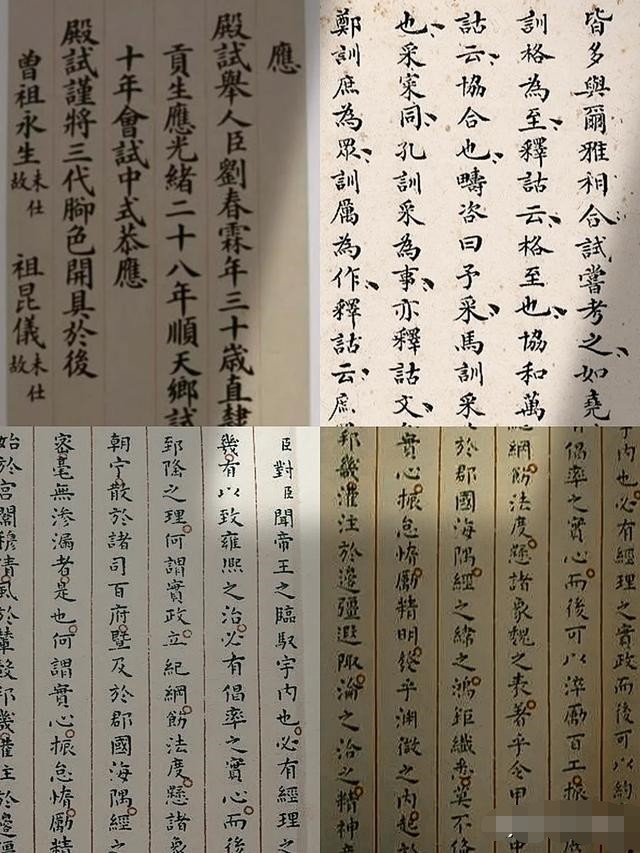 應
殿試舉人臣劉春霖年三十歲直隸
貢生應光緒二十八年順天鄉試
十年會試中式恭應
殿試謹將三代腳色開具於後
曾祖永生未仕故 祖昆儀未仕故
皆多與爾雅相合試嘗考之如堯
訓格為至釋詁云格至也協和萬
詁云協合也疇咨曰予采馬訓采
也采寀同孔訓采為事亦釋詁文
鄭訓庶為眾訓厲為作釋詁云庶
臣對臣聞帝王之臨馭宇內也必有經理之
幾有以致雍熙之治必有倡率之實心而後
郅隆之理何謂實政立紀綱飭法度懸諸象
朝寧散於諸司百府暨及於郡國海隅經之
審毫無滲漏者是也何謂實心振怠惰勵精
始於宮闈穆清風於輦轂邦畿灌注於邊疆
宇內也必有經理之實政而後可以約
有倡率之實心而後可以淬勵百工振
紀綱飭法度懸諸象魏之表著乎令甲
於郡國海隅經之緯之鴻鉅纖悉莫不備
實心振怠惰勵精明發乎淵微之內起於
邦畿灌注於邊疆遐陬淪之洽之精神意